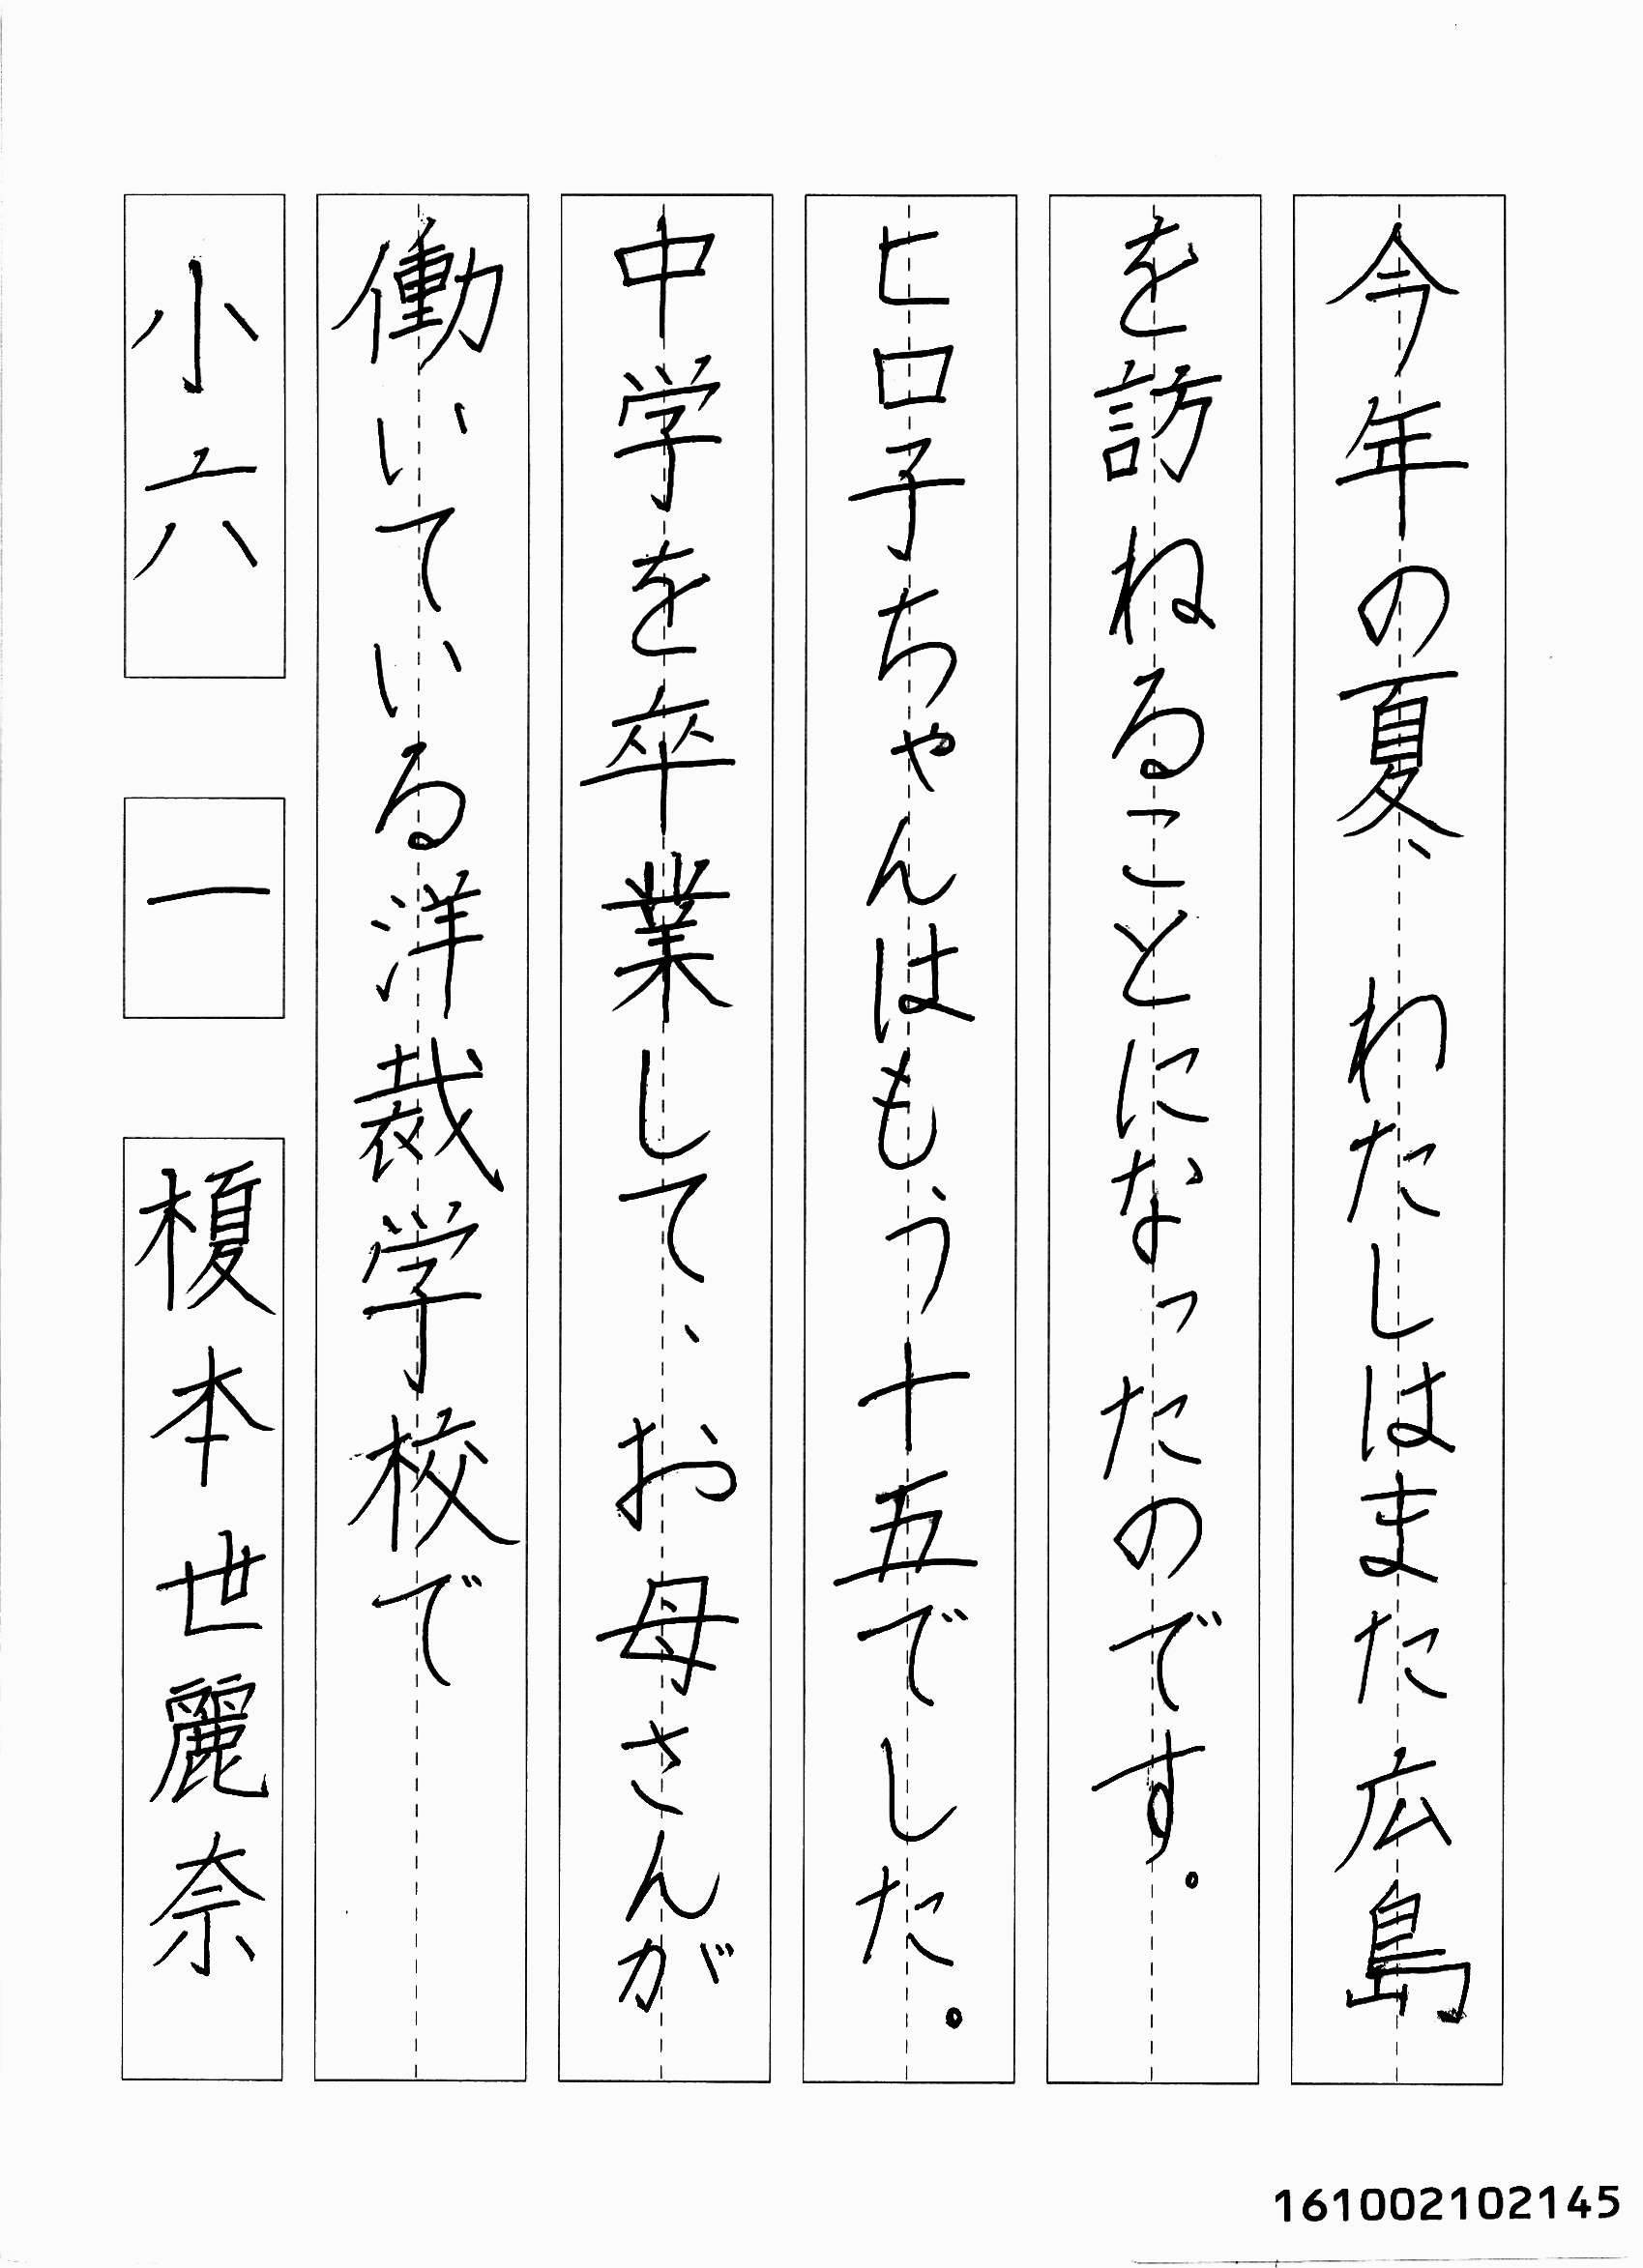 今年の夏、わたしはまた広島
を訪ねることになったのです。
ヒロ子ちゃんはもう十五でした。
中学を卒業して、お母さんが
働いている洋裁学校で
小六 一 榎本世麗奈
161002102145